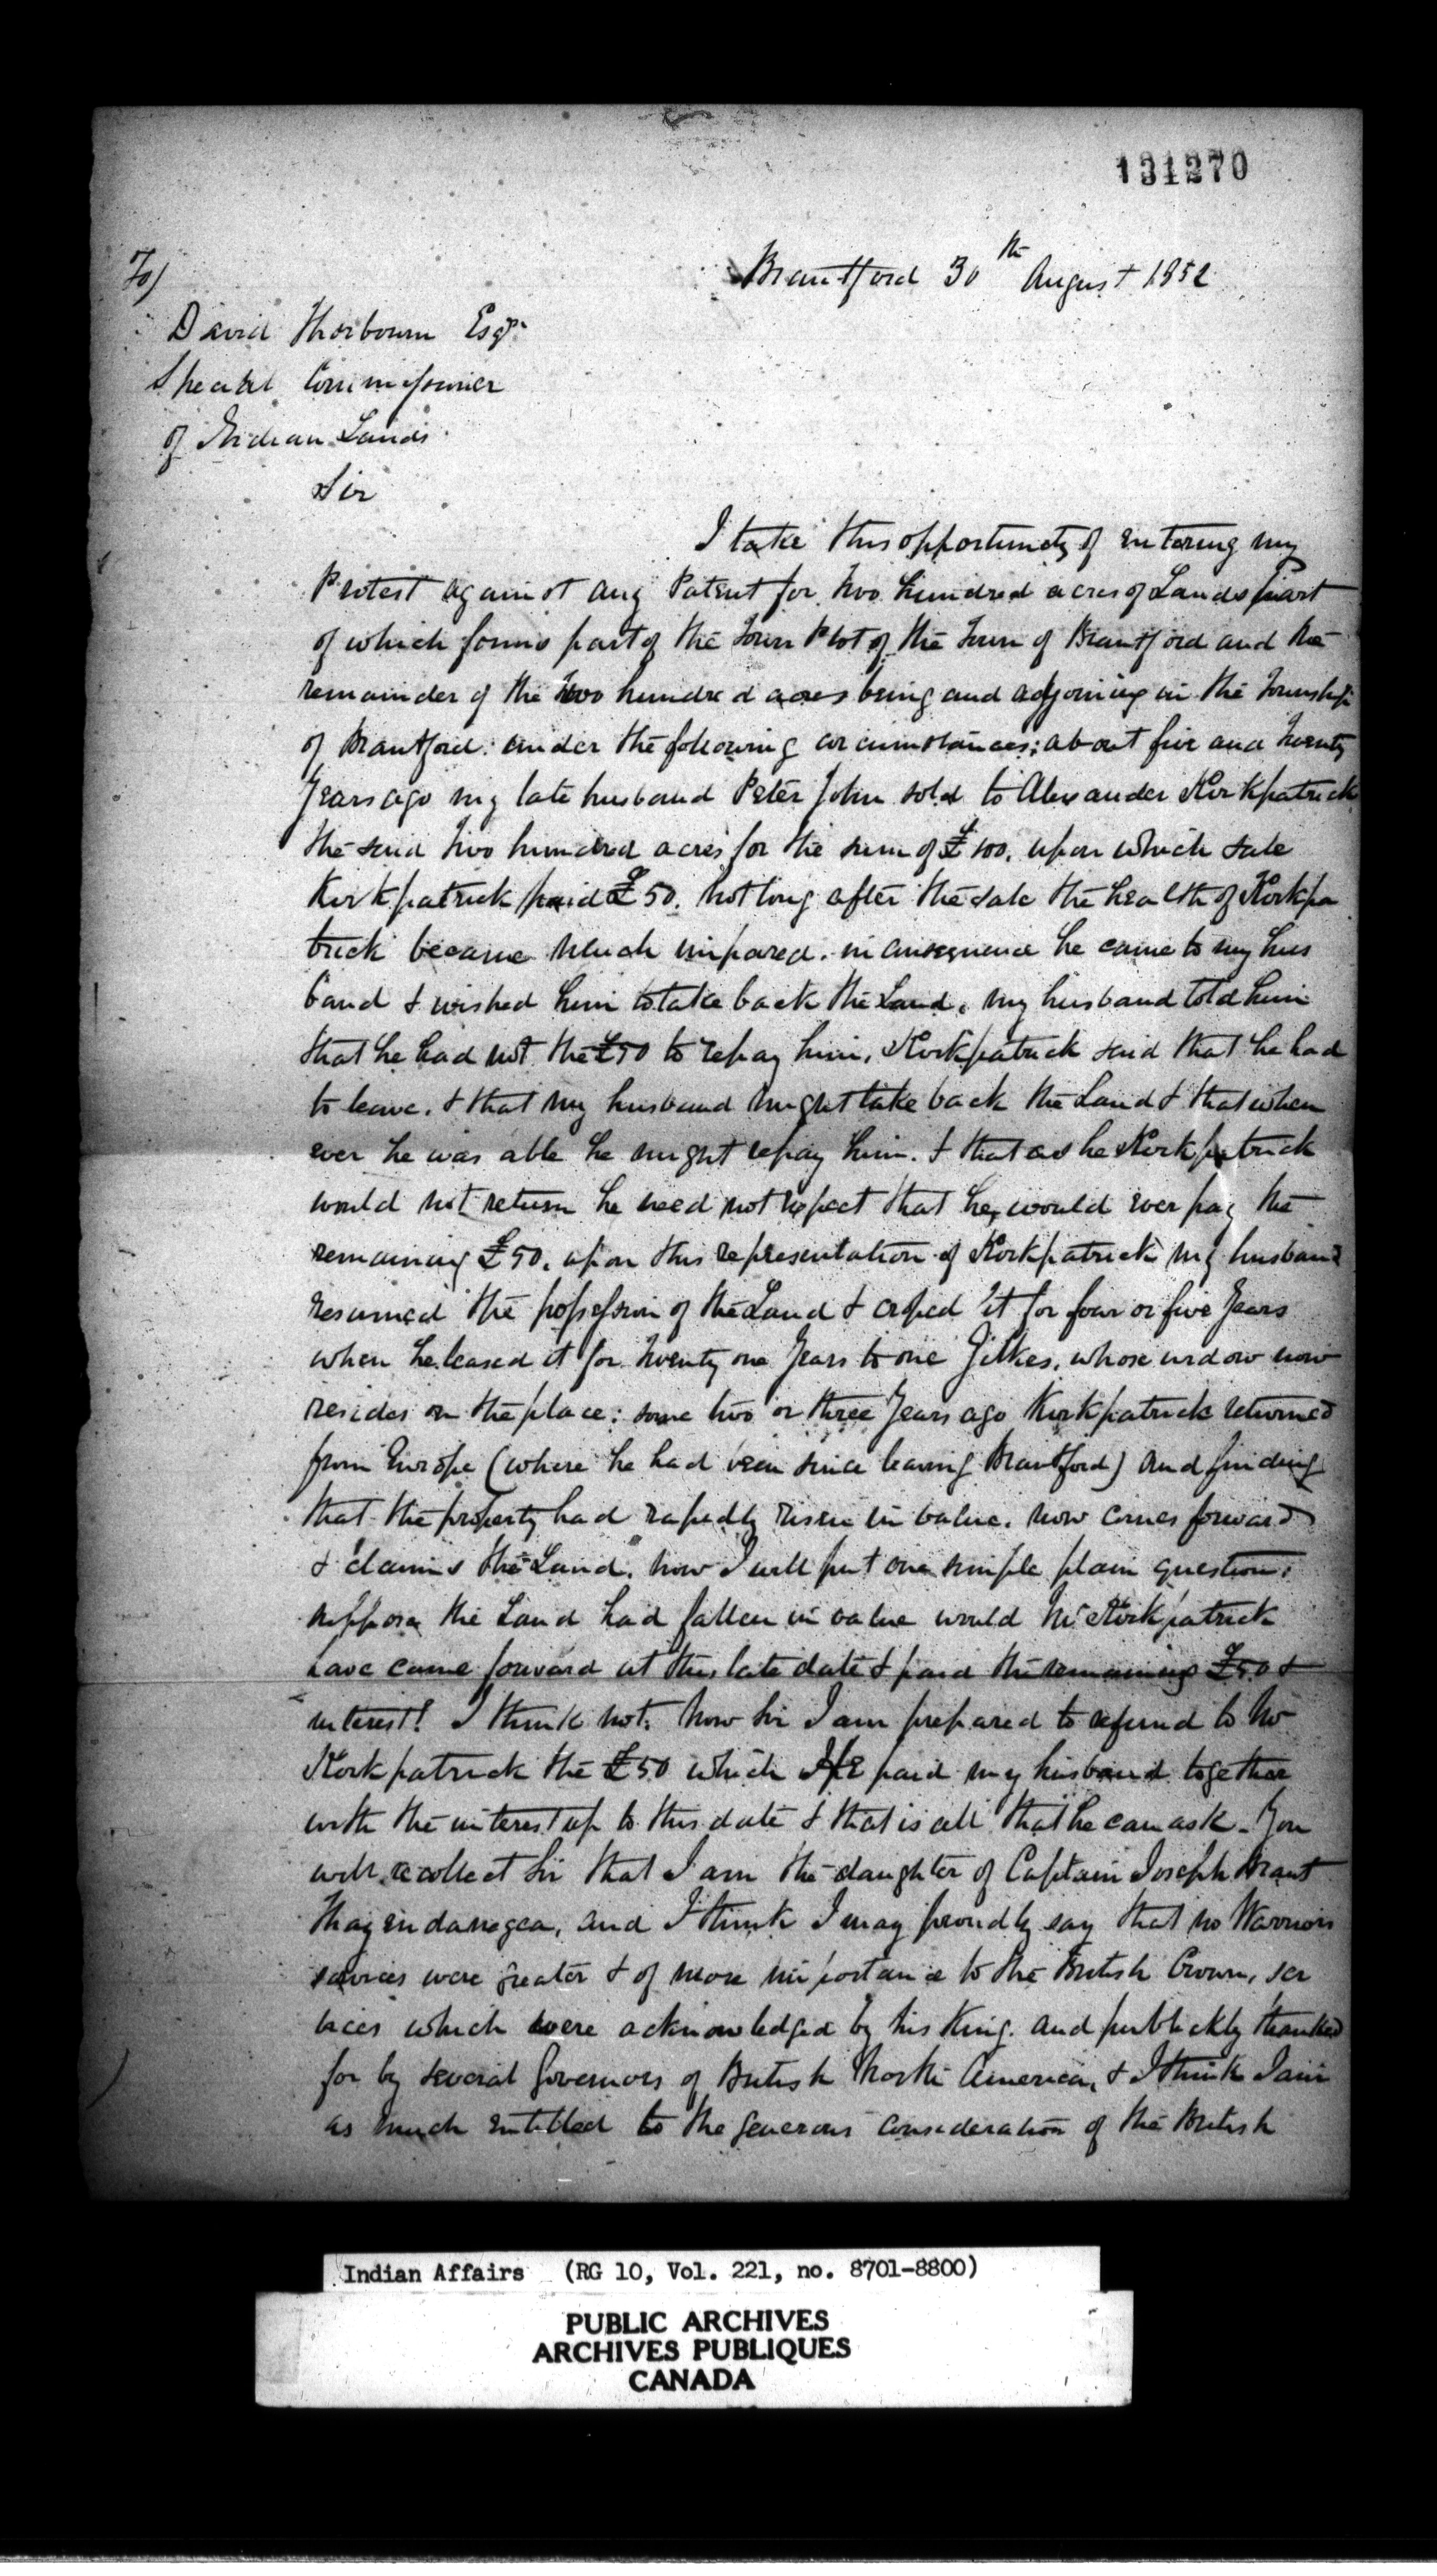 131270
Brantford 30th August 1852
To)
David Thorbourn Esqr.
Special Commissioner
of Indian Lands
Sir
I take this opportunity of entering my
Protest against any Patent for two hundred acres of Lands part
of which forms part of the Town Plot of the Town of Brantford and the
remainder of the two hundred acres being and adjoining in the Township
of Brantford: under the following circumstances; about five and twenty
Years ago my late husband Peter John sold to Alexander Kirkpatrick
the said two hundred acres for the sum of £100. upon which sale
Kirkpatrick paid £50. not long after the sale the health of Kirkpa
trick became much impared. in consequence he came to my hus
band & wished him to take back the Land, my husband told him
that he had not the £50 to repay him, Kirkpatrick said that he had
to leave. & that my husband might take back the Land & that when
ever he was able he might repay him. & that as he Kirkpatrick
would not return he need not expect that he would ever pay the
remaining £50. upon this representation of Kirkpatrick my husband
resumed the possession of the Land & croped it for four or five Years
when he leased it for twenty one Years to one Gilkes, whose widow now
resides on the place: some two or three Years ago Kirkpatrick returned
from Europe (where he had been since leaving Brantford) and finding
that the property had rapedly risen in value. now comes forward
& claims the Land. now I will put one simple plain question:
suppose the Land had fallen in value would Mr Kirkpatrick
have came forward at this late date & paid the remaining £50 &
interest? I think not. Now Sir I am prepared to refund to Mr
Kirkpatrick the £50 which He paid my husband together
with the interest up to this date & that is all that he can ask - You
will recollect Sir that I am the daughter of Captain Joseph Brant
Thayendanegea, and I think I may proudly say that no Warriors
services were greater & of more importance to the British Crown, ser
vices which were acknowledged by his King. and publickly thanked
for by several Governors of British North America, & I think I am
as much entitled to the generous consideration of the British
Indian Affairs (RG 10, Vol. 221, no. 8701-8800)
PUBLIC ARCHIVES
ARCHIVES PUBLIQUES
CANADA